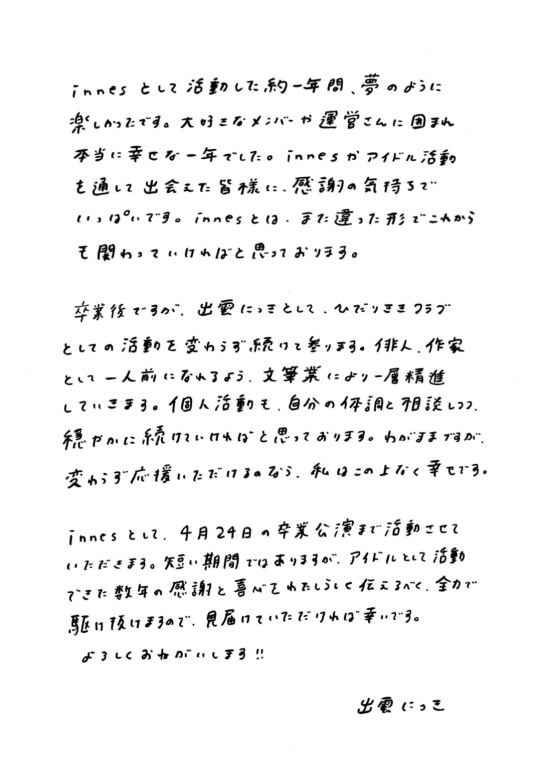 innesとして活動した約一年間、夢のように
楽しかったです。大好きなメンバーや運営さんに囲まれ
本当に幸せな一年でした。innesやアイドル活動
を通して出会えた皆様に、感謝の気持ちで
いっぱいです。innesとは、また違った形でこれから
も関わっていければと思っております。
卒業後ですが、出雲にっきとして、ひだりききクラブ
としての活動を変わらず続けて参ります。俳人、作家
として一人前になれるよう、文筆業により一層精進
していきます。個人活動も、自分の体調と相談しつつ、
穏やかに続けていければと思っております。わがままですが、
変わらず応援いただけるのなら、私はこの上なく幸せです。
innesとして、4月24日の卒業公演まで活動させて
いただきます。短い期間ではありますが、アイドルとして活動
できた数年の感謝と喜びをわたしらしく伝えるべく、全力で
駆け抜けますので、見届けていただければ幸いです。
よろしくおねがいします!!
出雲にっき